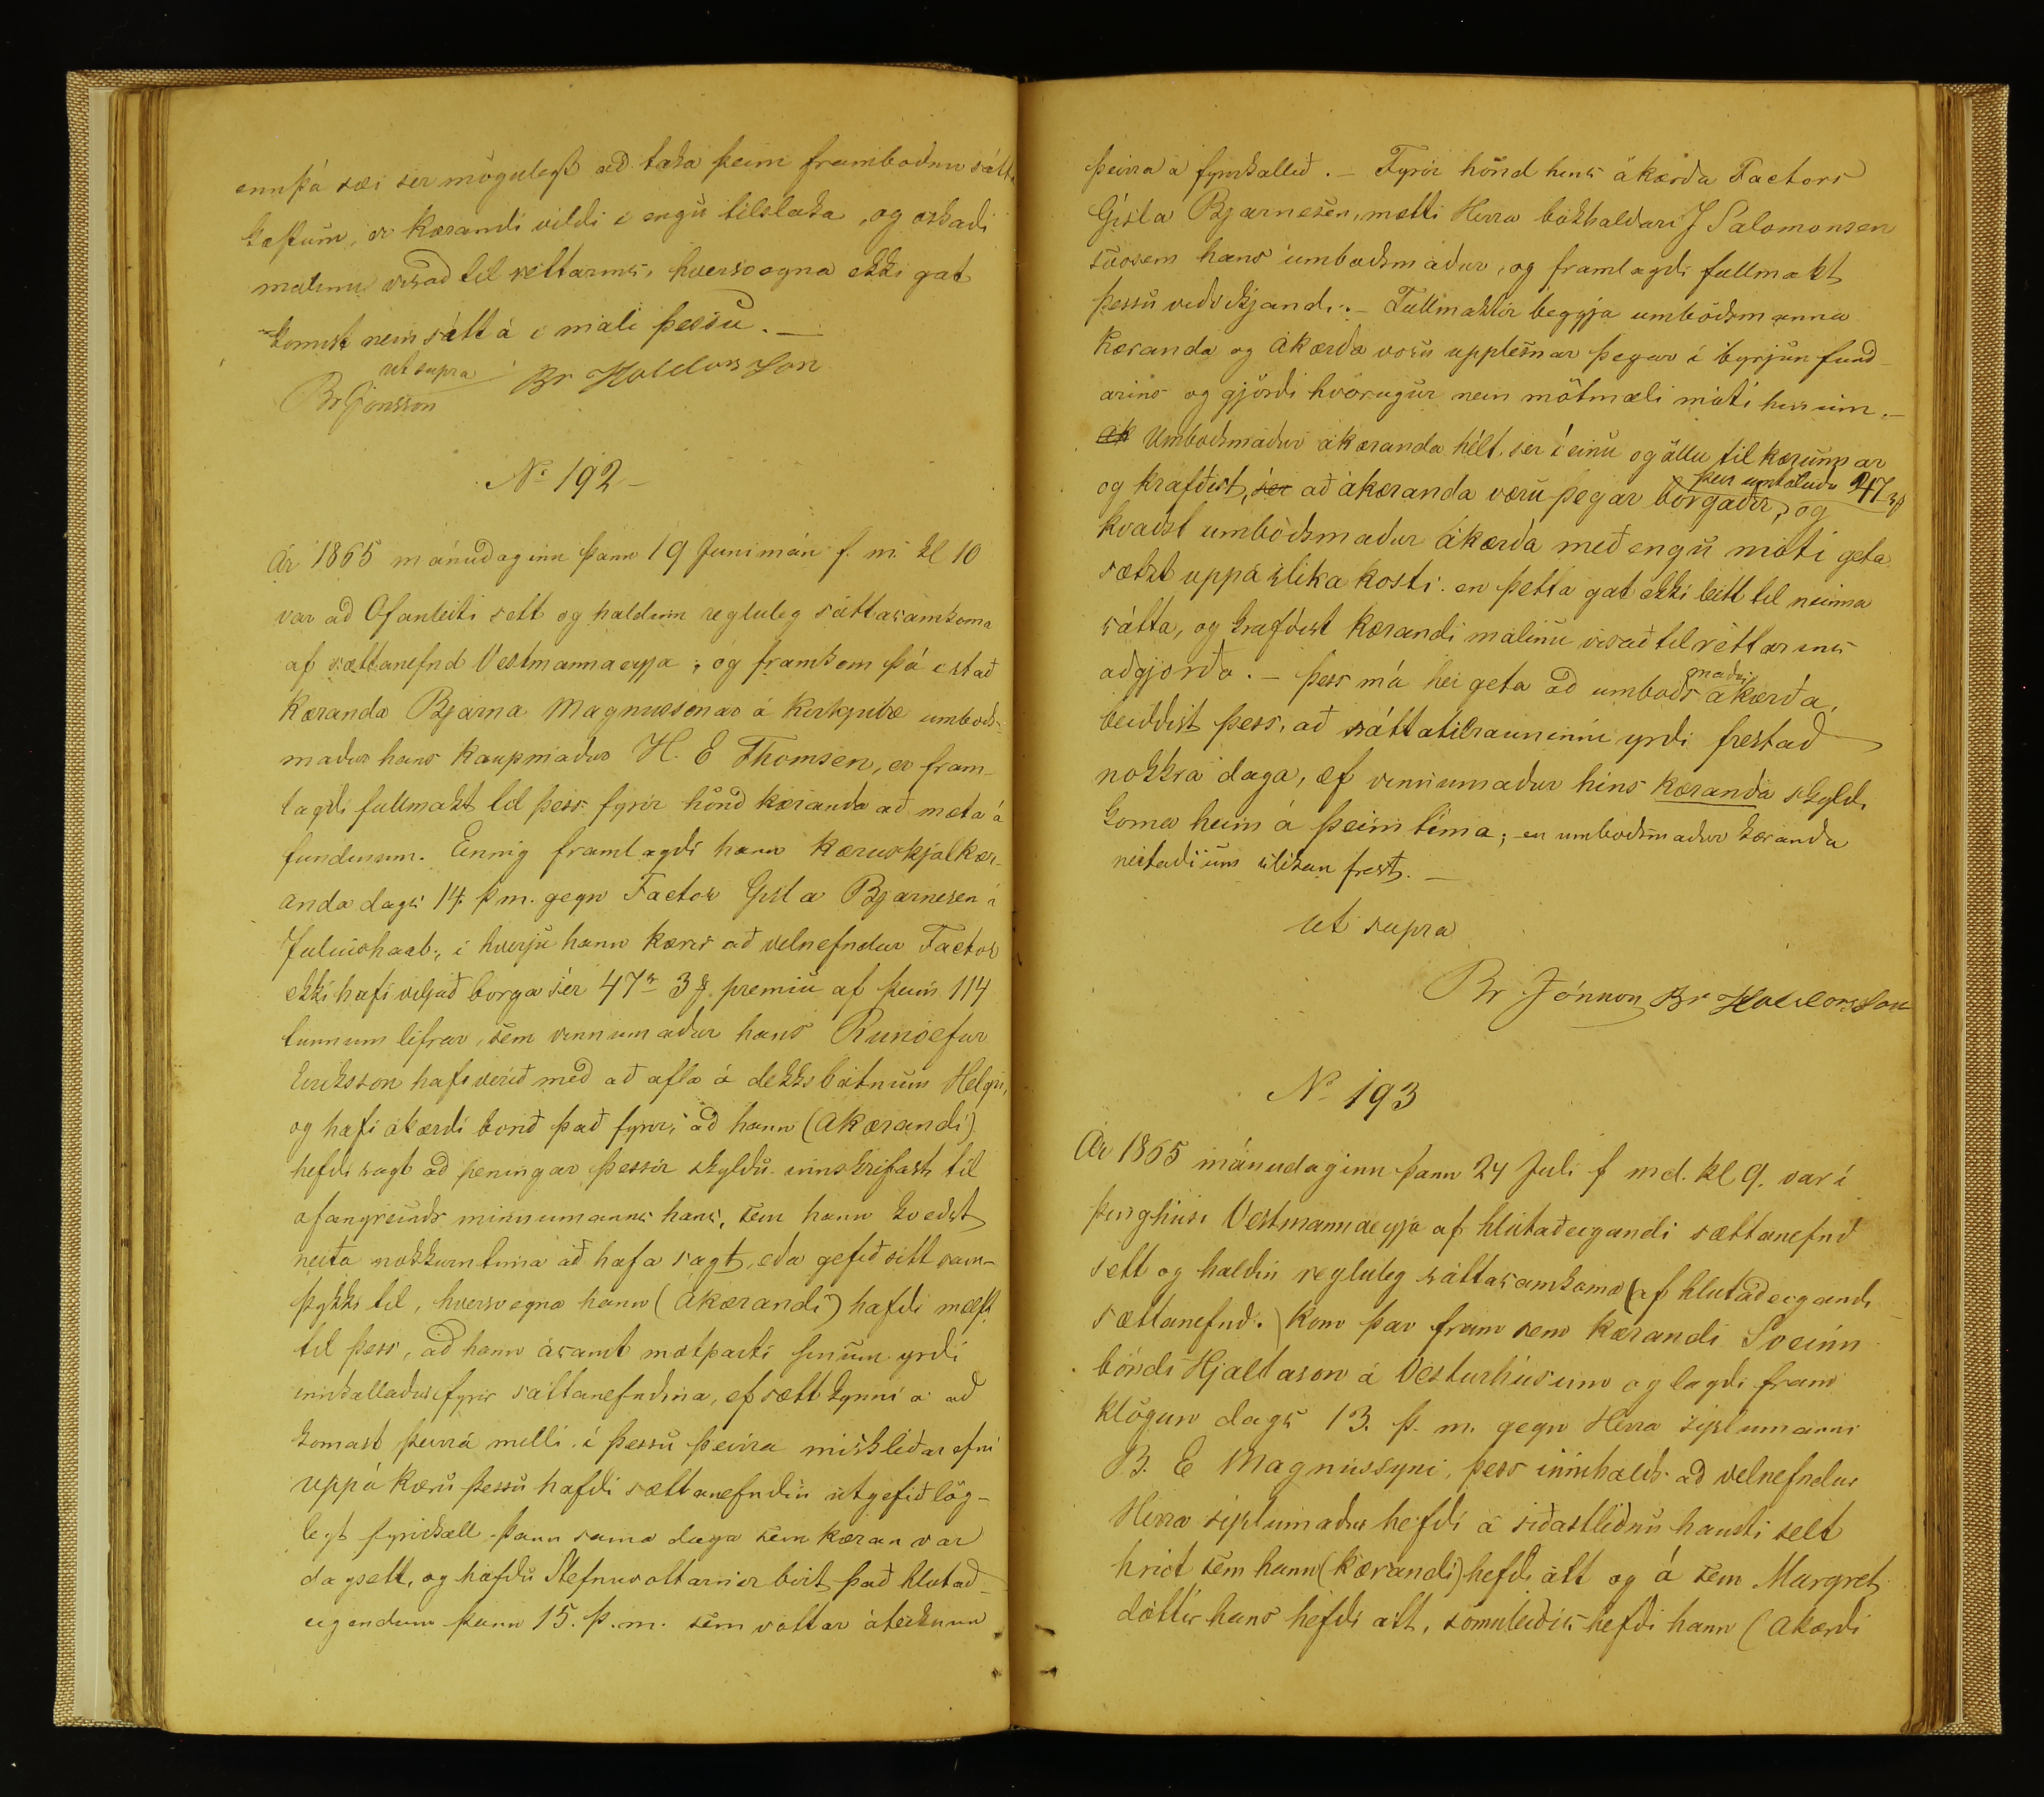 ennþá sæi ser mögulegt að taka þeim framboðnu sátta
kostum, er kærandi vildi i engu tilslaka, og oskaði
malinu visað til rettarins, hversvegna ekki gat
komist nein sátt á i máli þessu. —
ut supra
Br Jonsson Br Halldorsson
No 192 —
Ár 1865 mánudaginn þann 19 Junimán f. m. kl 10
var að Ofanleiti sett og haldinn regluleg sáttasamkoma
af sættanefnd Vestmannaeyja; og framkom þá i stað
Kæranda Bjarna Magnussonar á Kirkjubæ umboðs-
maður hans kaupmaður H. E Thomsen, er fram-
lagði fullmakt til þess fyrir hönd kæranda að mæta á
fundinum. Einnig framlagði hann kæruskjal kær-
anda dags 14 þ m. gegn Factor Gisla Bjarnesen í
Juliushaab, i hverju hann kærir að velnefndur Factor
ekki hafi viljað borga sér 47 rd 3 sk premiu af þeim 114
tunnum lifrar, sem vinnumaður hans Runolfur
Eiriksson hafi verið með að afla á dekksbátnum Helgu,
og hafi ákærði borið það fyrir, að hann (Akærandi)
hefði sagt að peningar þessir skyldu innskrifast til
ofangreinds vinnumanns hans, sem hann kveðst
neita nokkurntima að hafa sagt, eða gefið sitt sam-
þykki til, hversvegna hann (ákærandi) hafði mælst
til þess, að hann ásamt mótparti sinum yrði
innkallaður fyrir sáttanefndina, ef sætt kynni a að
komast þeirra milli i þessu þeirra misklíðarefni
uppá kæru þessu hafði sættanefndin útgefið lög-
legt fyrirkall þann sama daga sem kæran var
dagsett, og höfðu Stefnuvottarnir birt það hlutað-
eigendum þann 15. þ. m. sem vottar áteiknun
þeirra á fyrirkallið. — Fyrir hönd hins ákærða Factors
Gísla Bjarnesen, mætti Herra bókhaldari J Salomonsen
svosem hans umboðsmaður, og framlagði fullmakt
þessu viðvikjandi. — Fullmaktir beggja umboðsmanna
Kæranda og Akærða voru upplesnar þegar i byrjun fund-
arins og gjörði hvorugur nein mótmæli móti hinum. —
ak Umboðsmaður ákæranda hélt sér í einu og öllu til kærunnar
og krafðist, sér að ákæranda væru þegar borgaðir, þeir umtöluðu 47 rd 3 sk og
kvaðst umboðsmaður Akærða með engu móti geta
sætst uppá slíka kosti. en þetta gat ekki leitt til neinna
sátta, og krafðist Kærandi málinu visað til réttarins
aðgjorða. — þess má hér geta að umboðsmaður ákærða,
beiddist þess, að sáttatilrauninni yrði frestað
nokkra daga, ef vinnumaður hins kæranda skyldi
koma heim á þeim tíma; en umboðsmaður kæranda
neitaði um slíkan frest. —
ut supra
Br Jónsson Br Halldorsson
No 193
Ár 1865 mánudaginn þann 24 Juli f md. kl 9. var í
þinghúsi Vestmannaeyja af hlutaðeigandi sættanefnd
sett og haldin regluleg sáttasamkoma (af hlutaðeigandi
sættanefnd.) Kom þar fram sem kærandi Sveinn
bóndi Hjaltason á Vesturhúsum og lagði fram
klögun dags 13. þ. m. gegn Herra sýslumanni
B. E Magnússyni, þess innihalds að velnefndur
Herra sýslumaður hefði á síðastliðnu hausti selt
hrút sem hann (kærandi) hefði átt og á sem Margret
dóttir hans hefði átt, somuleiðis hefði hann (Akærði